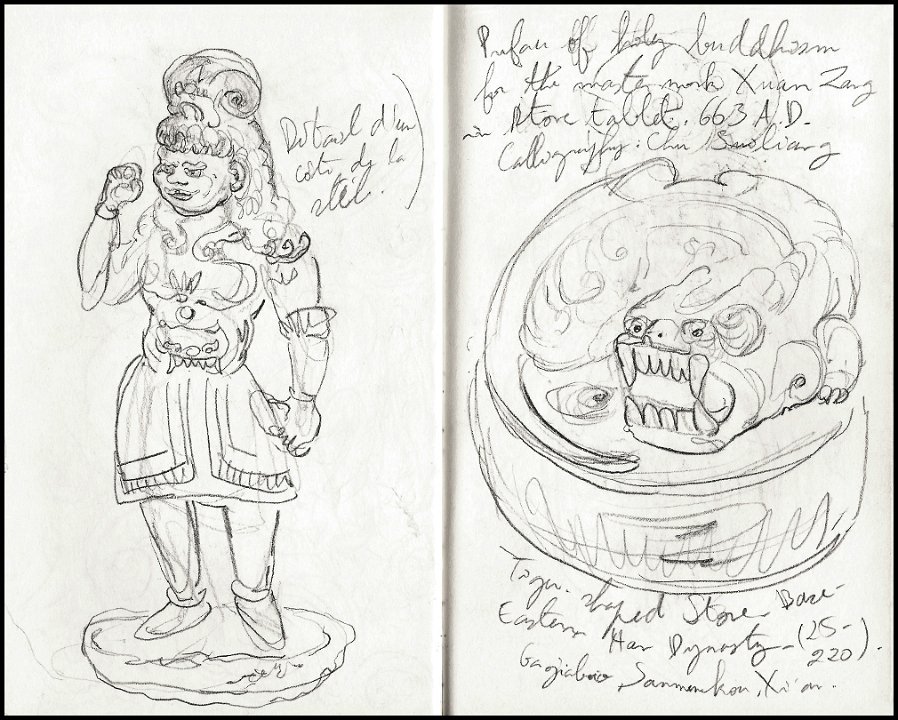 Détail d'un
coté de la
stèle.
Preface off holy buddhism
for the master monk Xuan Zang
Stone tablet. 663 A.D.
Calligraphy: Chu Suiliang
Tiger-shaped Stone Base-
Eastern Han Dynasty-(25-
220).
Sanmenkou, Xi'an.